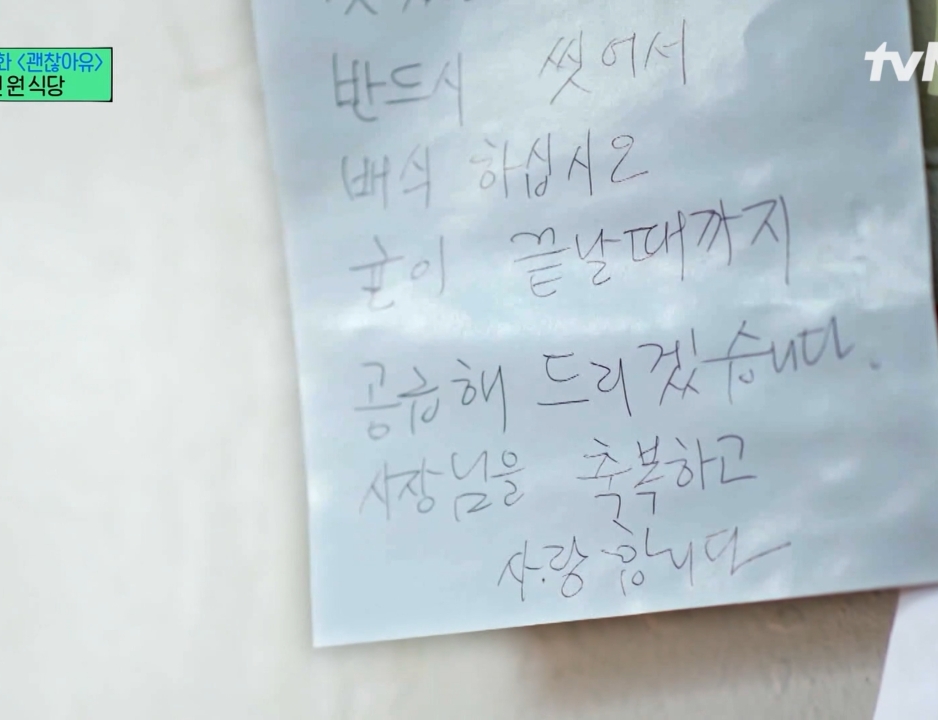 화 <괜찮아유>
원식당
tvN
반드시 씻어서
배식 하십시오
균이 끝날때까지
공급해 드리겠습니다.
사장님을 축복하고
사랑합니다